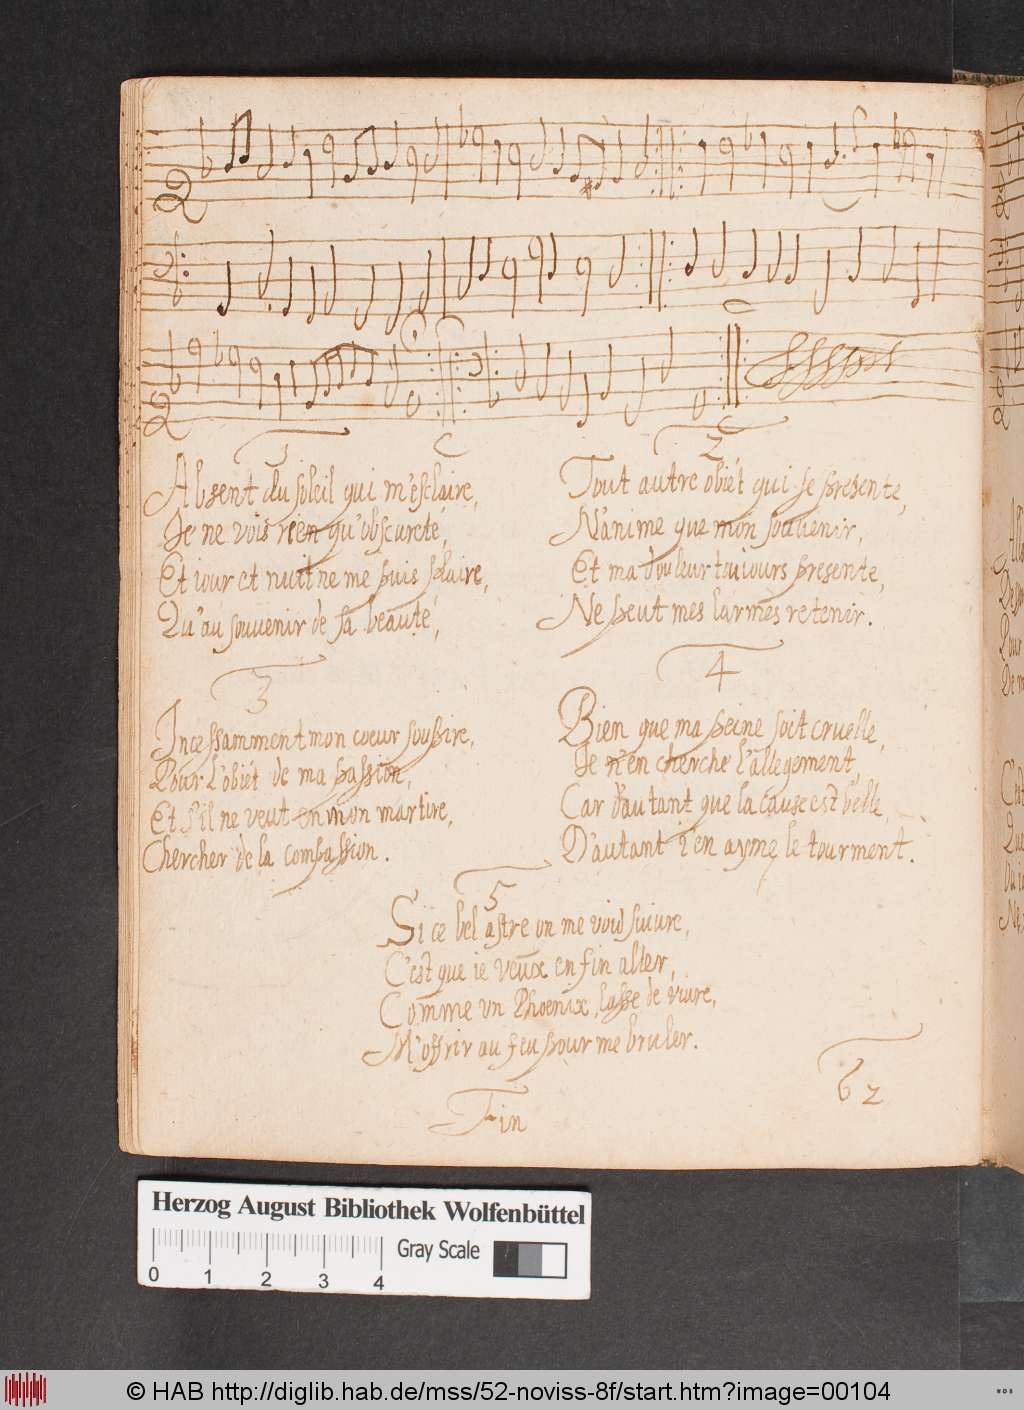 1
Absent du soleil qui m'esclaire,
Je ne vois rien qu'obscurcté,
Et iour et nuit ne me puis plaire,
Qu'au souvenir de sa beauté,
2
Tout autre obiét qui se presente,
N'anime que mon souvenir,
Et ma douleur toujours presente,
Ne peut mes larmes retenir.
3
Incessamment mon coeur soupire,
Pour l'obiét de ma passion,
Et s'il ne veut en mon martire,
Chercher de la compassion.
4
Bien que ma peine soit cruelle,
Je n'en cherche l'allegement,
Car d'autant que la cause est belle,
D'autant i'en ayme le tourment.
5
Si ce bel astre on me void suiure,
C'est que ie veux en fin aller,
Comme un Phoenix, lasse de viure,
M'offrir au feu pour me bruler.
Fin
62
Herzog August Bibliothek Wolfenbüttel
Gray Scale
0 1 2 3 4
© HAB http://diglib.hab.de/mss/52-noviss-8f/start.htm?image=00104